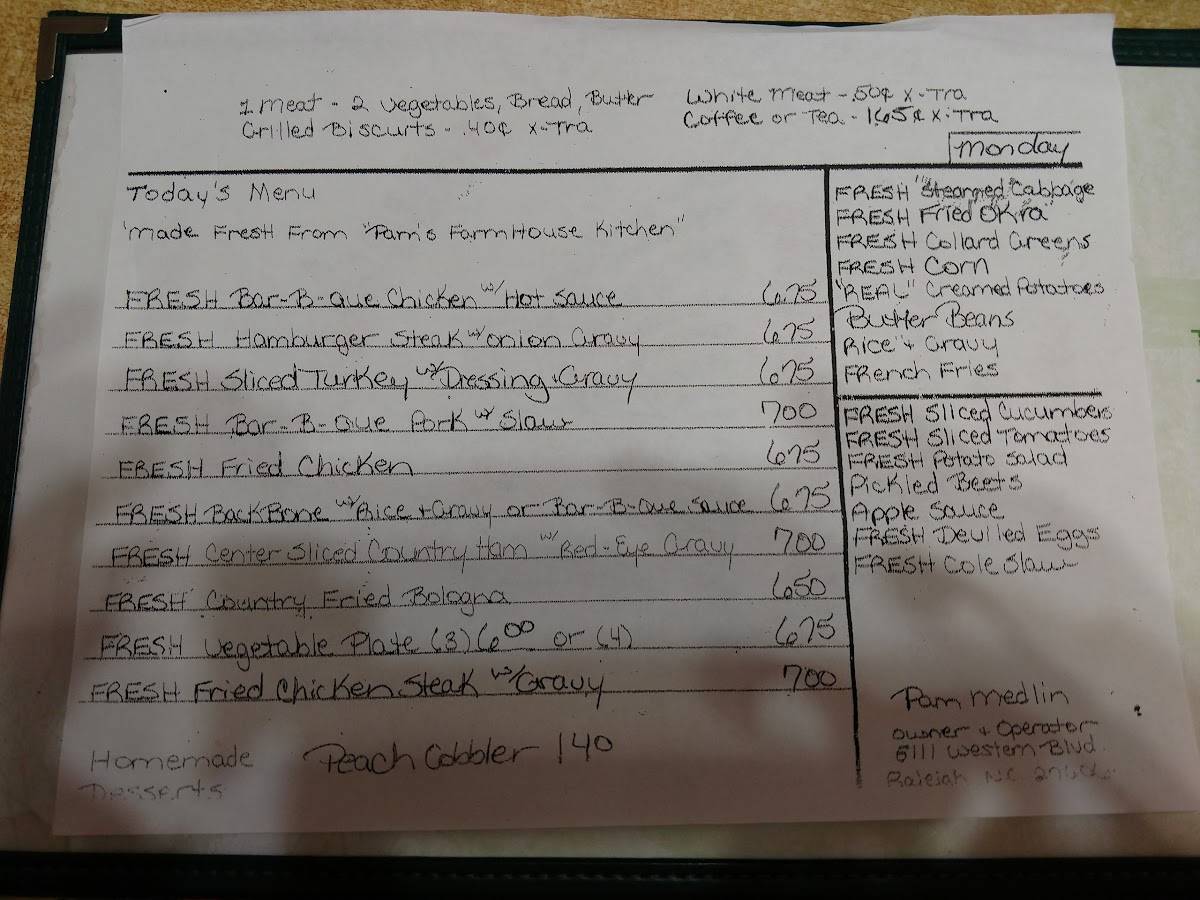 1 meat - 2 vegetables, Bread, Butter
Grilled Biscuits - .40¢ x-Tra
White meat - .50¢ x-Tra
Coffee or Tea - 1.65¢ x-Tra
Monday
Today's Menu
"Made Fresh From "Pam's FarmHouse Kitchen"
FRESH Bar-B-Que Chicken w/ Hot Sauce 675
FRESH Hamburger Steak w/ onion Gravy 675
FRESH Sliced Turkey w/ Dressing + Gravy 675
FRESH Bar-B-Que Pork w/ Slaw 700
FRESH Fried Chicken 675
FRESH BackBone w/ Rice + Gravy or Bar-B-Que Sauce 675
FRESH Center Sliced Country Ham w/ Red-Eye Gravy 700
FRESH Country Fried Bologna 650
FRESH Vegetable Plate (3) 6 00 or (4) 675
FRESH Fried Chicken Steak w/ Gravy 700
Homemade
Desserts
Peach Cobbler 140
FRESH "Steamed" Cabbage
FRESH Fried OKra
FRESH Collard Greens
FRESH Corn
"REAL" Creamed Potatoes
Butter Beans
Rice + Gravy
FRench Fries
FRESH Sliced Cucumbers
FRESH Sliced Tomatoes
FRESH Potato Salad
Pickled Beets
Apple Sauce
FRESH Devilled Eggs
FRESH Cole Slaw
Pam Medlin
owner + Operator
5111 Western Blvd.
Raleigh NC